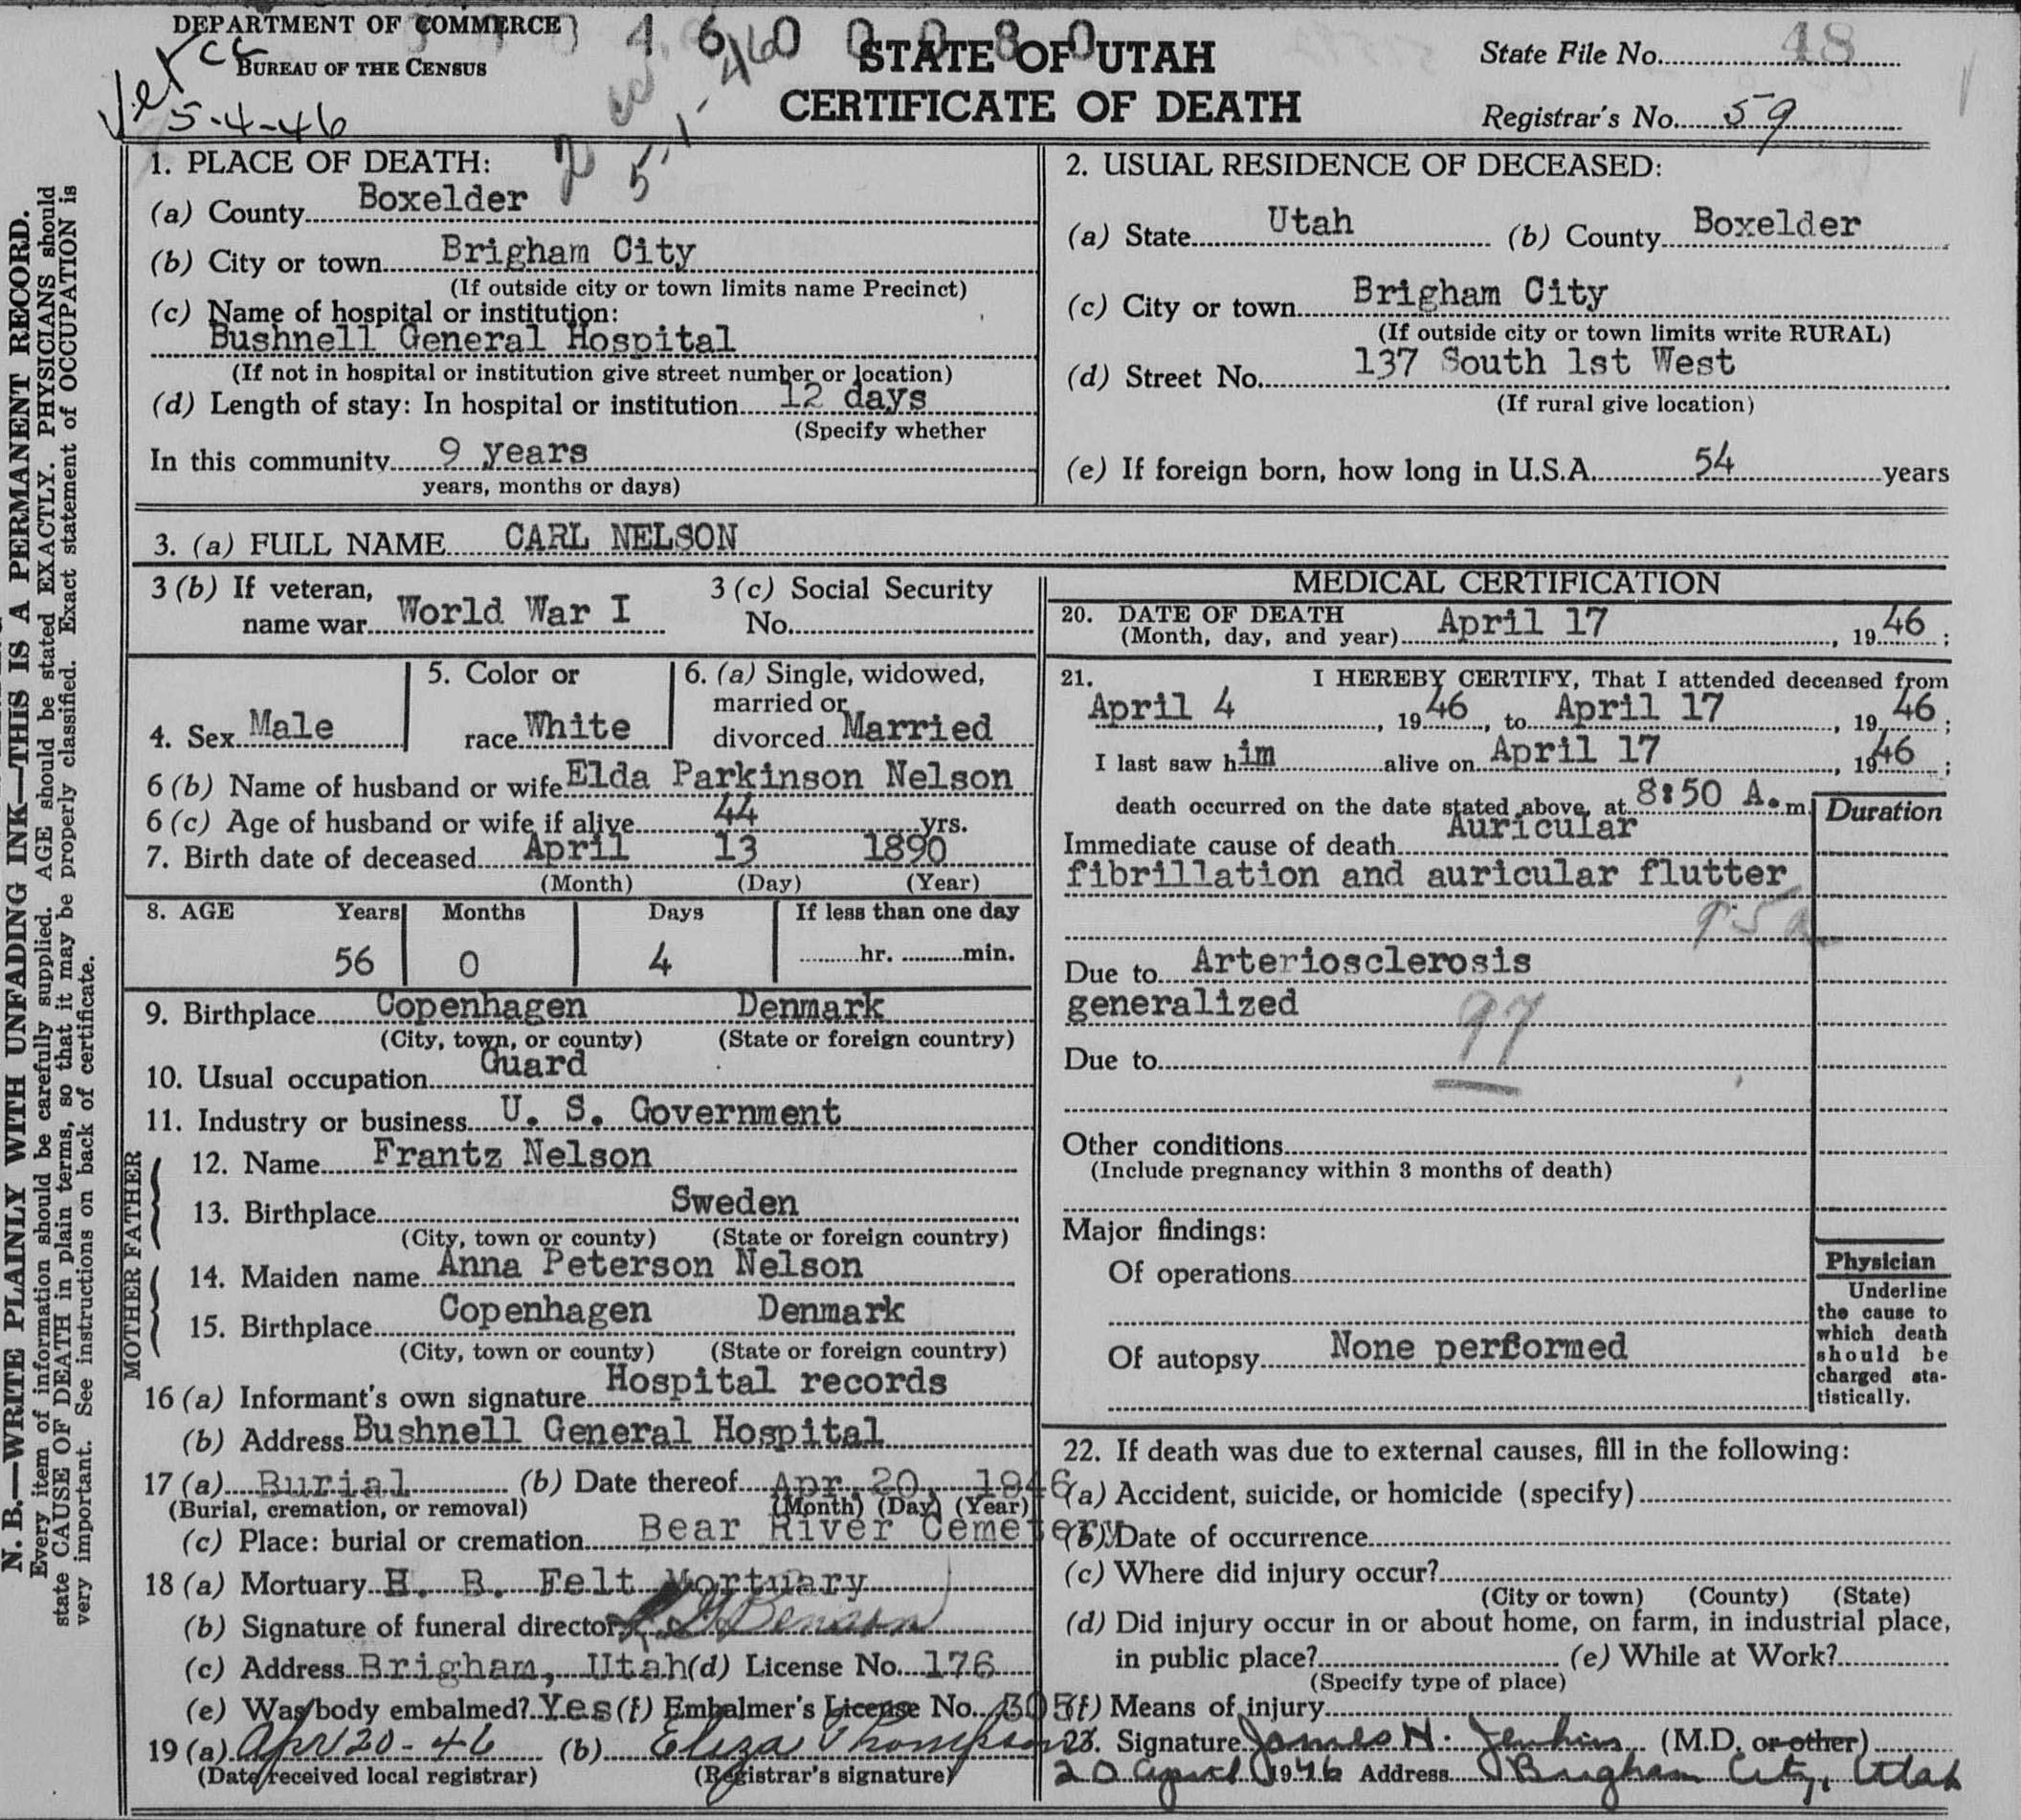 DEPARTMENT OF COMMERCE
BUREAU OF THE CENSUS
Vet cc
5-4-46
4 6 0 0 8 0
STATE OF UTAH
CERTIFICATE OF DEATH
State File No. 48
Registrar's No. 59
N. B.—WRITE PLAINLY WITH UNFADING INK—THIS IS A PERMANENT RECORD.
Every item of information should be carefully supplied. AGE should be stated EXACTLY. PHYSICIANS should
state CAUSE OF DEATH in plain terms, so that it may be properly classified. Exact statement of OCCUPATION is
very important. See instructions on back of certificate.
1. PLACE OF DEATH:
(a) County Boxelder
(b) City or town Brigham City
(If outside city or town limits name Precinct)
(c) Name of hospital or institution:
Bushnell General Hospital
(If not in hospital or institution give street number or location)
(d) Length of stay: In hospital or institution 12 days
(Specify whether
In this community 9 years
years, months or days)
2. USUAL RESIDENCE OF DECEASED:
(a) State Utah (b) County Boxelder
(c) City or town Brigham City
(If outside city or town limits write RURAL)
(d) Street No. 137 South 1st West
(If rural give location)
(e) If foreign born, how long in U.S.A. 54 years
3. (a) FULL NAME CARL NELSON
3 (b) If veteran,
name war World War I
3 (c) Social Security
No.
4. Sex Male
5. Color or
race White
6. (a) Single, widowed,
married or
divorced Married
6 (b) Name of husband or wife Elda Parkinson Nelson
6 (c) Age of husband or wife if alive 44 yrs.
7. Birth date of deceased April 13 1890
(Month) (Day) (Year)
8. AGE Years Months Days If less than one day
56 0 4 hr. min.
9. Birthplace Copenhagen Denmark
(City, town, or county) (State or foreign country)
10. Usual occupation Guard
11. Industry or business U. S. Government
FATHER
12. Name Frantz Nelson
13. Birthplace Sweden
(City, town or county) (State or foreign country)
MOTHER
14. Maiden name Anna Peterson Nelson
15. Birthplace Copenhagen Denmark
(City, town or county) (State or foreign country)
16 (a) Informant's own signature Hospital records
(b) Address Bushnell General Hospital
17 (a) Burial (b) Date thereof Apr. 20, 1946
(Burial, cremation, or removal) (Month) (Day) (Year)
(c) Place: burial or cremation Bear River Cemetery
18 (a) Mortuary H. B. Felt Mortuary
(b) Signature of funeral director Benson
(c) Address Brigham, Utah (d) License No. 176
(e) Was body embalmed? Yes (f) Embalmer's License No. 305
19 (a) Apr 20-46 (b) Eliza Thompson
(Date received local registrar) (Registrar's signature)
MEDICAL CERTIFICATION
20. DATE OF DEATH
(Month, day, and year) April 17, 1946;
21. I HEREBY CERTIFY, That I attended deceased from
April 4, 1946, to April 17, 1946;
I last saw him alive on April 17, 1946;
death occurred on the date stated above, at 8:50 A. m.
Duration
Immediate cause of death Auricular
fibrillation and auricular flutter
95a
Due to Arteriosclerosis
generalized
97
Due to
Other conditions
(Include pregnancy within 3 months of death)
Major findings:
Of operations
Of autopsy None performed
Physician
Underline
the cause to
which death
should be
charged sta-
tistically.
22. If death was due to external causes, fill in the following:
(a) Accident, suicide, or homicide (specify)
(b) Date of occurrence
(c) Where did injury occur?
(City or town) (County) (State)
(d) Did injury occur in or about home, on farm, in industrial place,
in public place? (e) While at Work?
(Specify type of place)
(f) Means of injury
23. Signature James N. Jenkins (M.D. or other)
20 April 1946 Address Brigham City, Utah